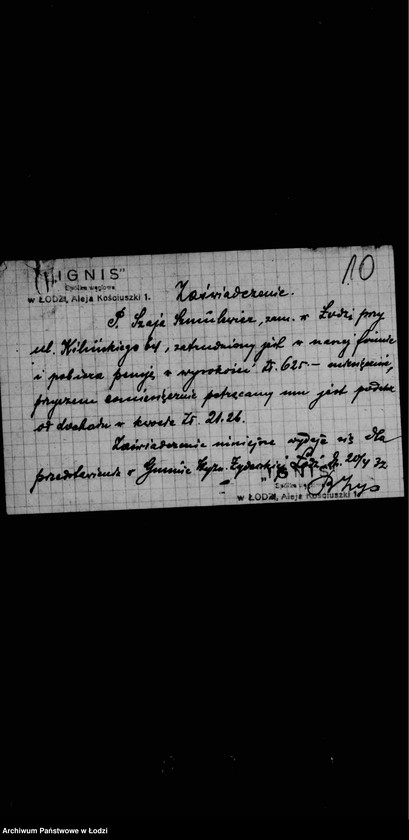 "IGNIS"
Spółka węglowa
w ŁODZI, Aleja Kościuszki 1.
10
Zaświadczenie.
P. Szaja Szmulewicz, zam. w Łodzi przy
ul. Kilińskiego, zatrudniony jest w naszej firmie
i pobiera pensję w wysokości Zł. 625.– miesięcznie,
przyczem comiesięcznie potrącany mu jest podatek
od dochodu w kwocie Zł. 21.26.
Zaświadczenie niniejsze wydaje się dla
przedstawienia w Gminie Wyzn. Żydowskiej Łódź 20/V 32
w ŁODZI, Aleja Kościuszki 1
Archiwum Państwowe w Łodzi